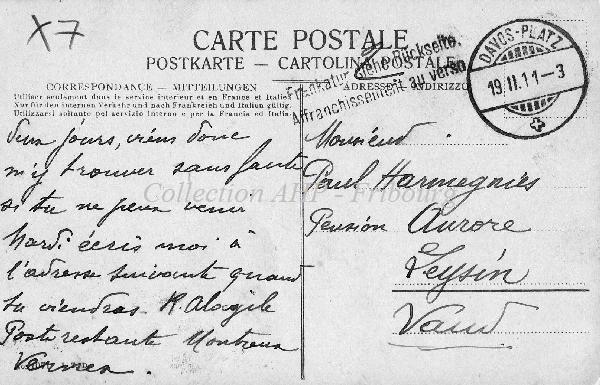 X7
CARTE POSTALE
POSTKARTE — CARTOLINA POSTALE
Frankatur siehe Rückseite.
Affranchissement au verso
DAVOS-PLATZ
19.II.11-3
CORRESPONDANCE — MITTEILUNGEN
Utiliser seulement dans le service intérieur et en France et Italie
Nur für den internen Verkehr und nach Frankreich und Italien gültig.
Utilizzarsi soltanto pel servizio interno e per la Francia ed Italia
ADRESSE INDIRIZZO
deux jours, viens donc
m'y trouver sans faute
si tu ne peux venir
Mardi écris moi à
l'adresse suivante quand
tu viendras
Poste restante Montreux
Vernex.
Monsieur
Paul Harmegnies
Pension Aurore
Leysin
Vaud
Collection AHP - Fribourg